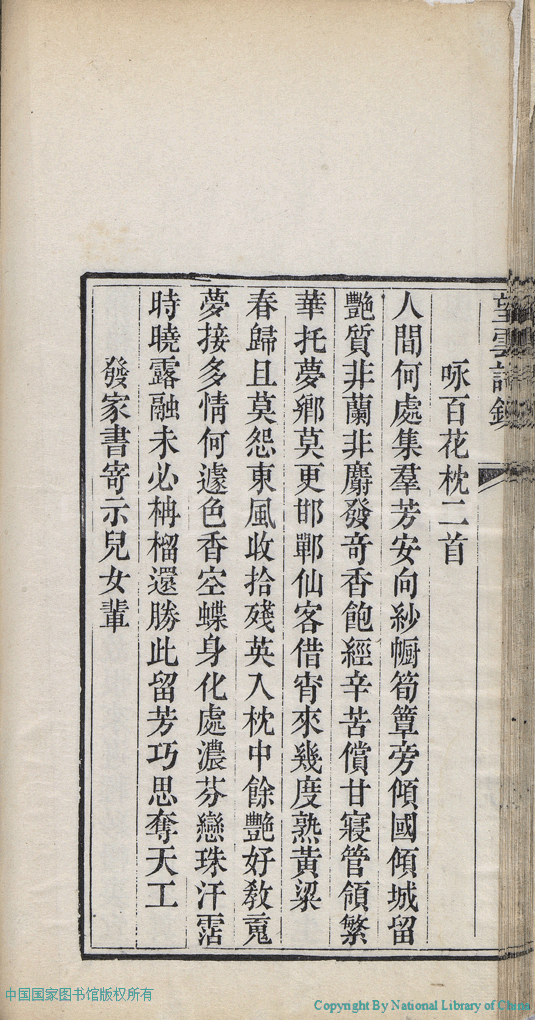 望雲詩鈔
咏百花枕二首
人間何處集羣芳安向紗幮筍簟旁傾國傾城留
艷質非蘭非麝發奇香飽經辛苦償甘寢管領繁
華托夢鄉莫更邯鄲仙客借宵來幾度熟黃粱
春歸且莫怨東風收拾殘英入枕中餘艷好教䰟
夢接多情何遽色香空蝶身化處濃芬戀珠汗霑
時曉露融未必柟榴還勝此留芳巧思奪天工
發家書寄示兒女輩
中国国家图书馆版权所有
Copyright By National Library of China